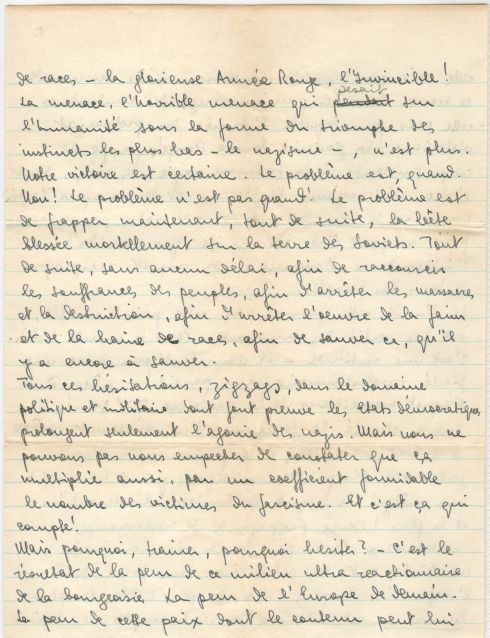 de races – la glorieuse Armée Rouge, l'Invincible!
La menace, l'horrible menace qui pesait sur
l'humanité sous la forme du triomphe des
instincts les plus bas – le nazisme –, n'est plus.
Notre victoire est certaine. Le problème est, quand.
Non! Le problème n'est pas quand! Le problème est
de frapper maintenant, tout de suite, la bête
blessée mortellement sur la terre des Soviets. Tout
de suite, sans aucun délai, afin de raccourcir
les souffrances des peuples, afin d'arrêter les massacres
et la destruction, afin d'arrêter l'oeuvre de la faim
et de la haine de races, afin de sauver ça, qu'il
y a encore à sauver.
Tous ces hésitations, zigzags, dans le domaine
politique et militaire dont font preuve les Etats démocratiques
prolongent seulement l'agonie des nazis. Mais nous ne
pouvons pas nous empecher de constater que ça
multiplie aussi, par un coefficient formidable
le nombre des victimes du fascisme. Et c'est ça qui
compte!
Mais pourquoi, trainer, pourquoi hesiter? – C'est le
résultat de la peur de ce milieu ultra reactionnaire
de la bourgeoisie. La peur de l'Europe de demain.
La peur de cette paix dont le contenu peut lui